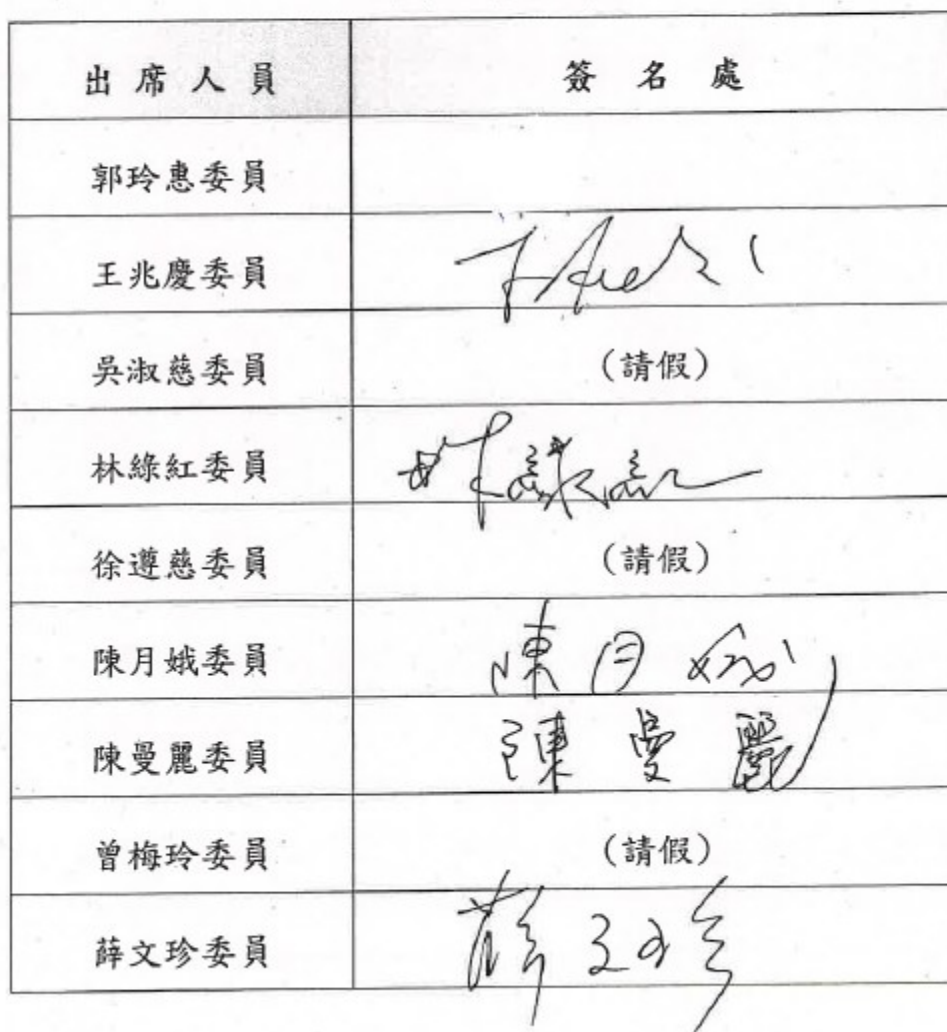 出席人員 簽名處
郭玲惠委員
王兆慶委員
吳淑慈委員 (請假)
林綠紅委員 林綠紅
徐遵慈委員 (請假)
陳月娥委員 陳月娥
陳曼麗委員 陳曼麗
曾梅玲委員 (請假)
薛文珍委員 薛文珍